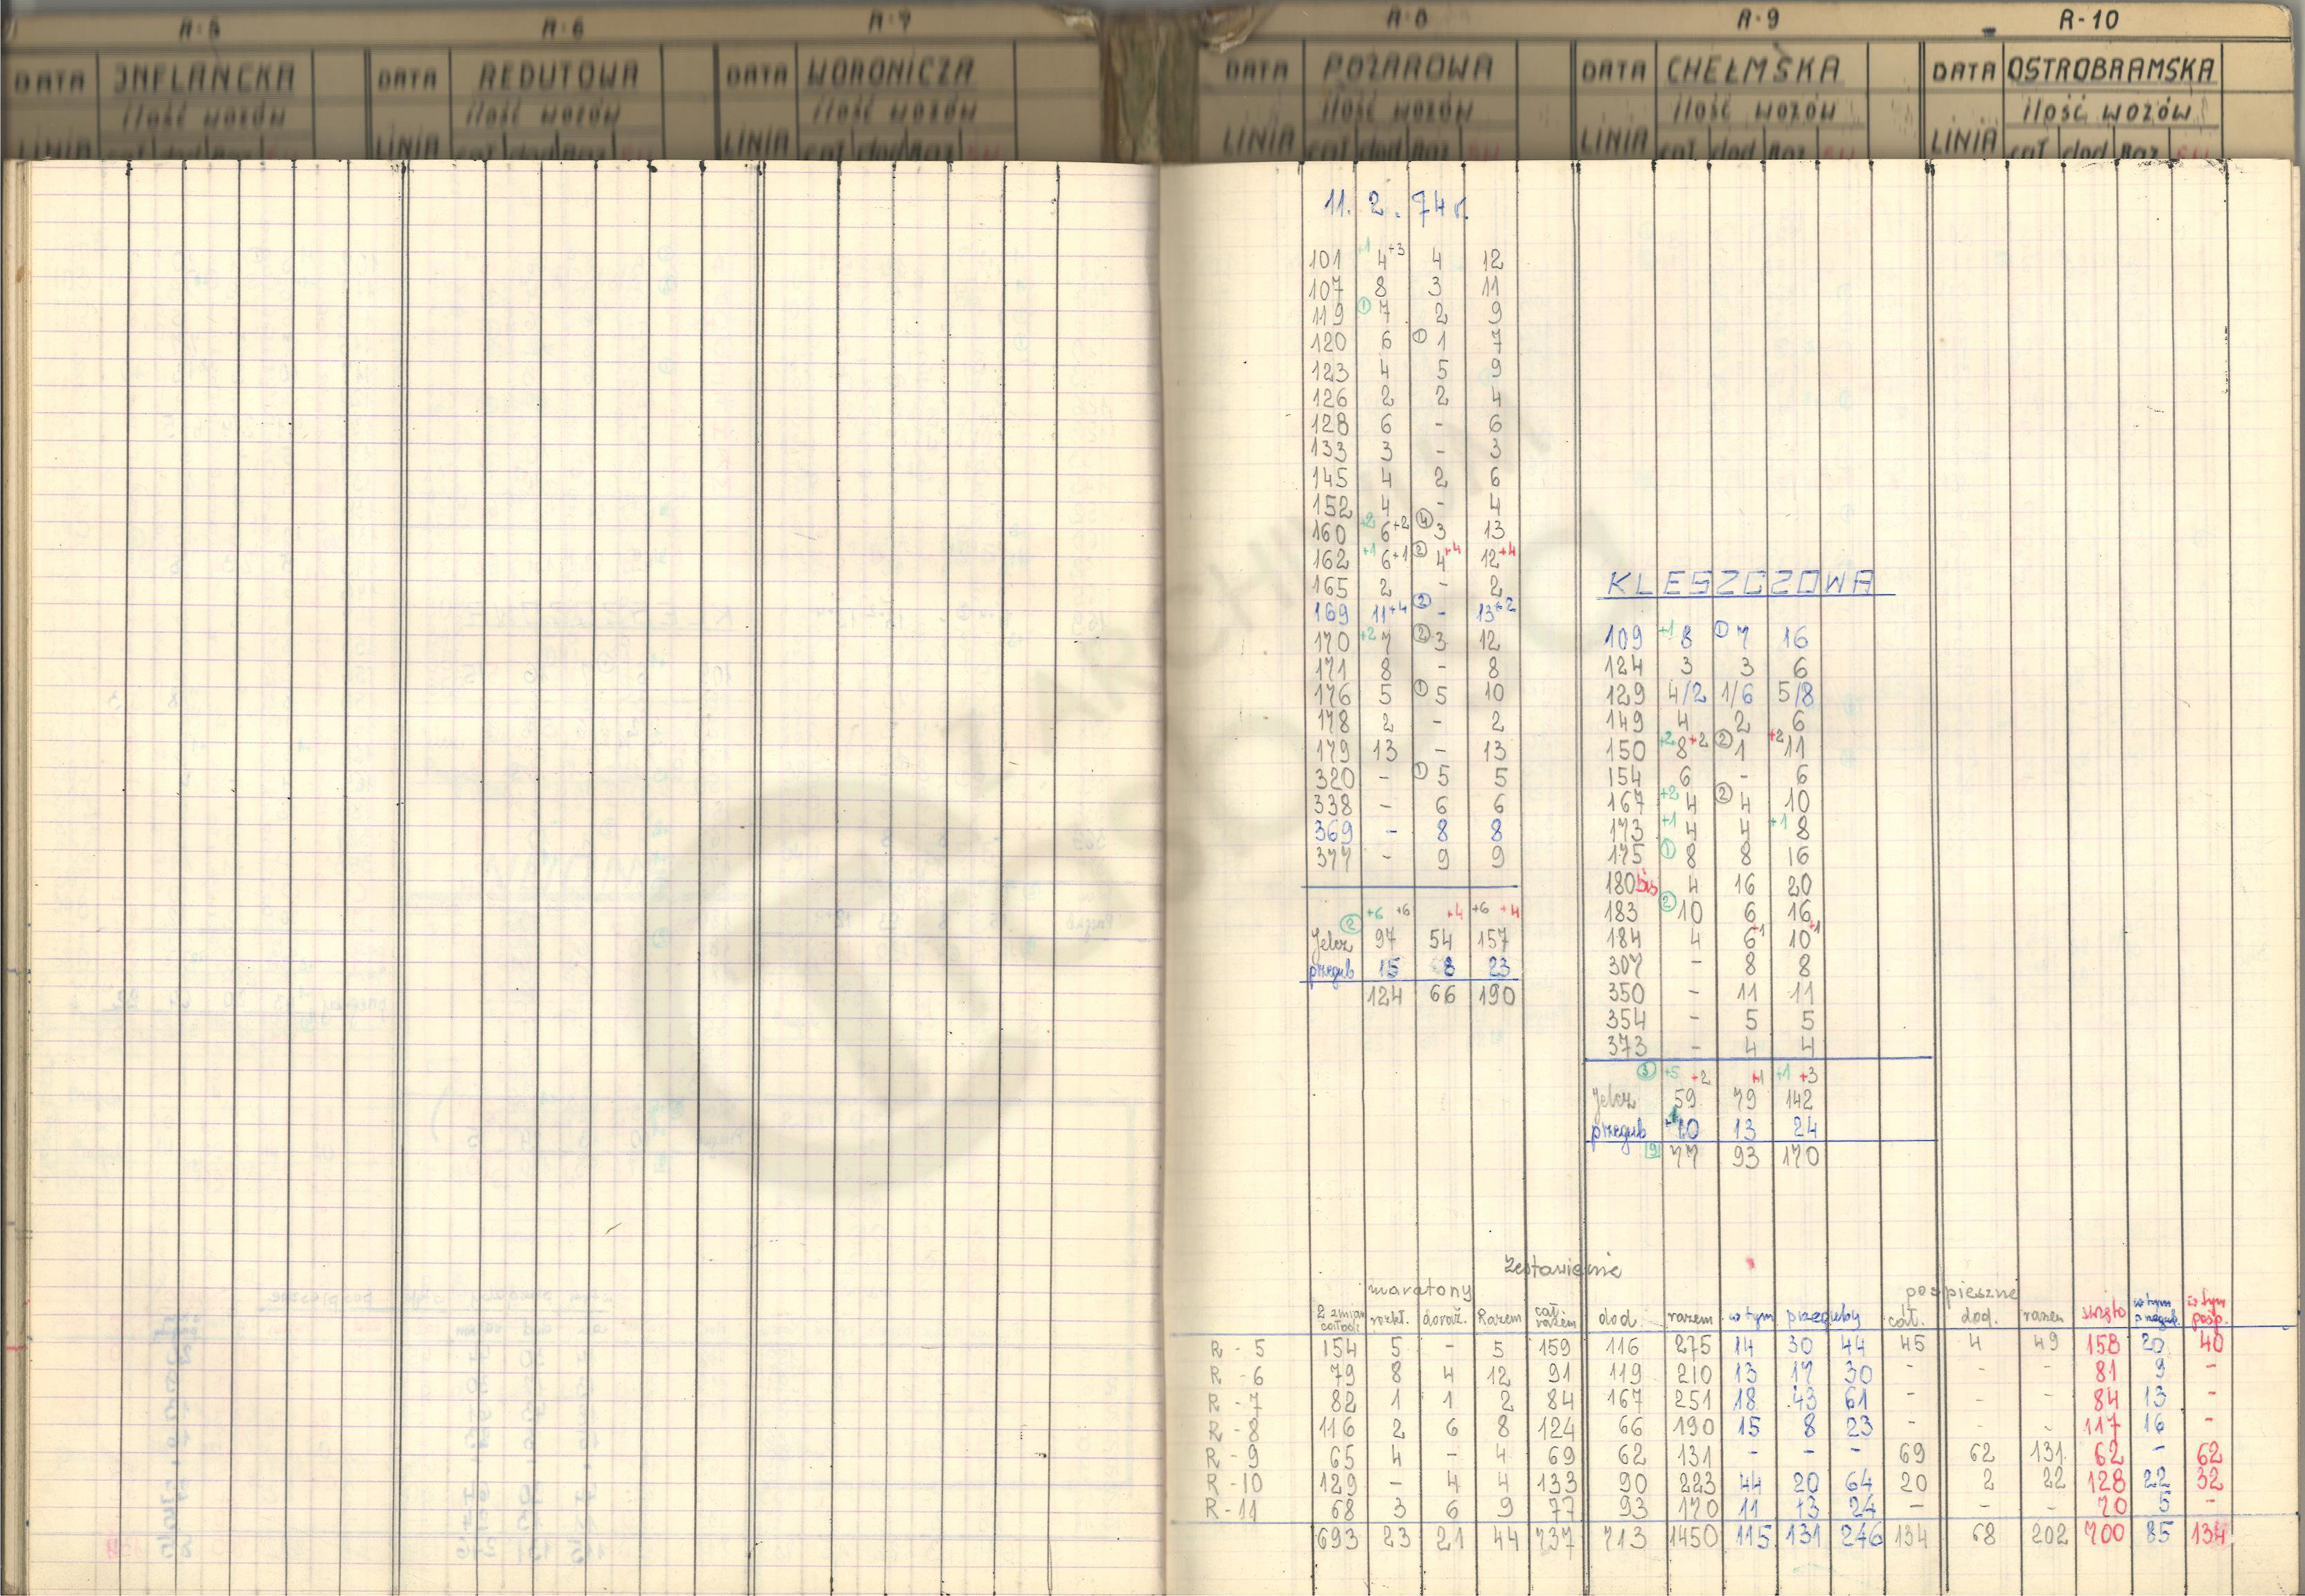 R-5 R-6 R-7 R-8 R-9 R-10
DATA INFLANCKA DATA REDUTOWA DATA WORONICZA DATA POŻAROWA DATA CHEŁMSKA DATA OSTROBRAMSKA
ilość wozów ilość wozów ilość wozów ilość wozów ilość wozów ilość wozów
LINIA cał dod Raz LINIA cał dod Raz LINIA cał dod Raz LINIA cał dod Raz LINIA cał dod Raz LINIA cał dod Raz
11. 2. 74 r.
101 +1 4+3 4 12
107 8 3 11
119 ① 7 2 9
120 6 ① 1 7
123 4 5 9
126 2 2 4
128 6 - 6
133 3 - 3
145 4 2 6
152 4 - 4
160 +2 6+2 ④ 3 13
162 +1 6+1 ② 4+4 12+4
165 2 - 2
169 11+4 ② - 13+2
170 +2 7 ② 3 12
171 8 - 8
176 5 ① 5 10
178 2 - 2
179 13 - 13
320 - ① 5 5
338 - 6 6
369 - 8 8
377 - 9 9
② +6 +6 +4 +6 +4
Jelcz 97 54 157
przegub 15 8 23
124 66 190
KLESZCZOWA
109 +1 8 ① 7 16
124 3 3 6
129 4/2 1/6 5/8
149 4 2 6
150 +2 8+2 ② 1 +2 11
154 6 - 6
167 +2 4 ② 4 10
173 +1 4 4 +1 8
175 ① 8 8 16
180 bis 4 16 20
183 ② 10 6 16
184 4 6+1 10+1
307 - 8 8
350 - 11 11
354 - 5 5
373 - 4 4
③ +5 +2 +1 +1 +3
Jelcz 59 79 142
przegub +1 10 13 24
9 77 93 170
Zestawienie
maratony pospieszne
2 zmian całod. rozkł. doraź. Razem cał. razem dod. razem w tym przeguby cał. dod. razem święto w tym przegub. w tym posp.
R - 5 154 5 - 5 159 116 275 14 30 44 45 4 49 158 20 40
R - 6 79 8 4 12 91 119 210 13 17 30 - - - 81 9 -
R - 7 82 1 1 2 84 167 251 18 43 61 - - - 84 13 -
R - 8 116 2 6 8 124 66 190 15 8 23 - - - 117 16 -
R - 9 65 4 - 4 69 62 131 - - - 69 62 131 62 - 62
R - 10 129 - 4 4 133 90 223 44 20 64 20 2 22 128 22 32
R - 11 68 3 6 9 77 93 170 11 13 24 - - - 70 5 -
693 23 21 44 737 713 1450 115 131 246 134 68 202 700 85 134